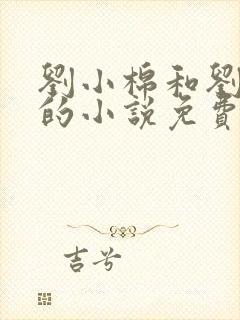 劉小棉和劉
的小說免費
吉兮